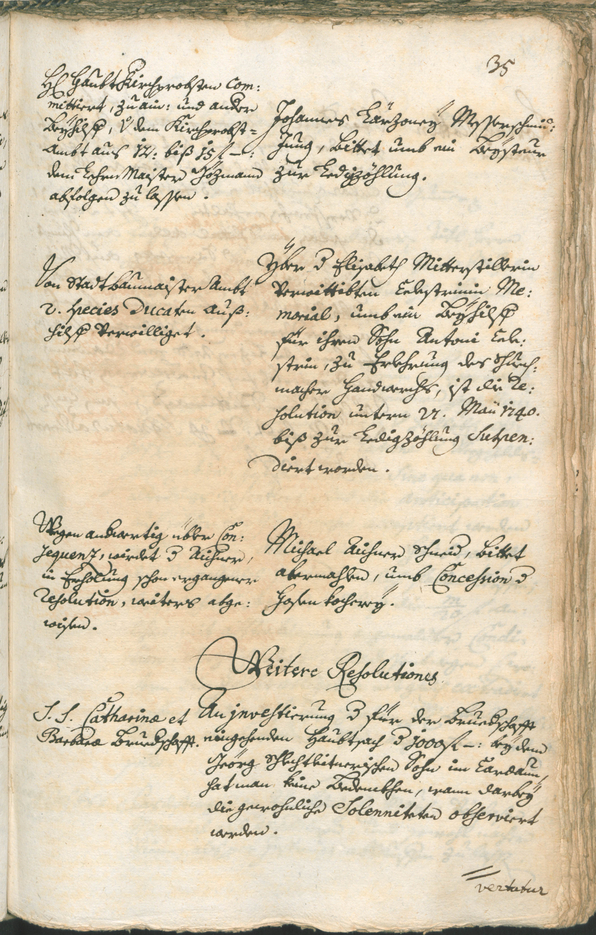 35
H: Haubt Kirchprobsten com:
mittiert, zu ain: und andere
Beyhilff, v. dem Kirchprobst=
Ambt aus 12: biß 15 f —:
dem Lehen Maister Hozmann
abfolgen zu lassen.
Johannes Messerschmid:
Jung, bittet umb ein Beysteur
zur Ledigzöhlung.
Von Stadtbaumaister Ambt
2. species Ducaten Auß:
hilff verwilliget.
Yber d Elisabeth Mitterstillerin
verwittibten Celestrinin Me:
morial, umb ein Beyhilff
für ihren Sohn Antoni Cele:
strin, zu Erlehrnung des Schuech:
macher Handwerchs, ist die Re:
solution untern 27. Maii 1740.
biß zur Ledigzöhlung suspen:
diert worden.
Wegen anderwertig übler Con:
sequenz, würdet d Aichner,
in Erholung schon ergangener
Resolution, weiters abge:
wisen.
Michael Aichner Schneid, bittet
abermahlen, umb Concession d
Hosen kocherey.
Weitere Resolutiones
S. S. Catharinæ et
Barbaræ Bruedschafft.
An investierung d für der Brueschafft
eingehenden Haubtsach d 1000 f —: bey dem
Georg Schlechtleitnerischen Sohn im Cardaun,
hat man keine Bedenkhen, wann darbey
die gewohnliche Solenniteten observiert
worden.
vertatur